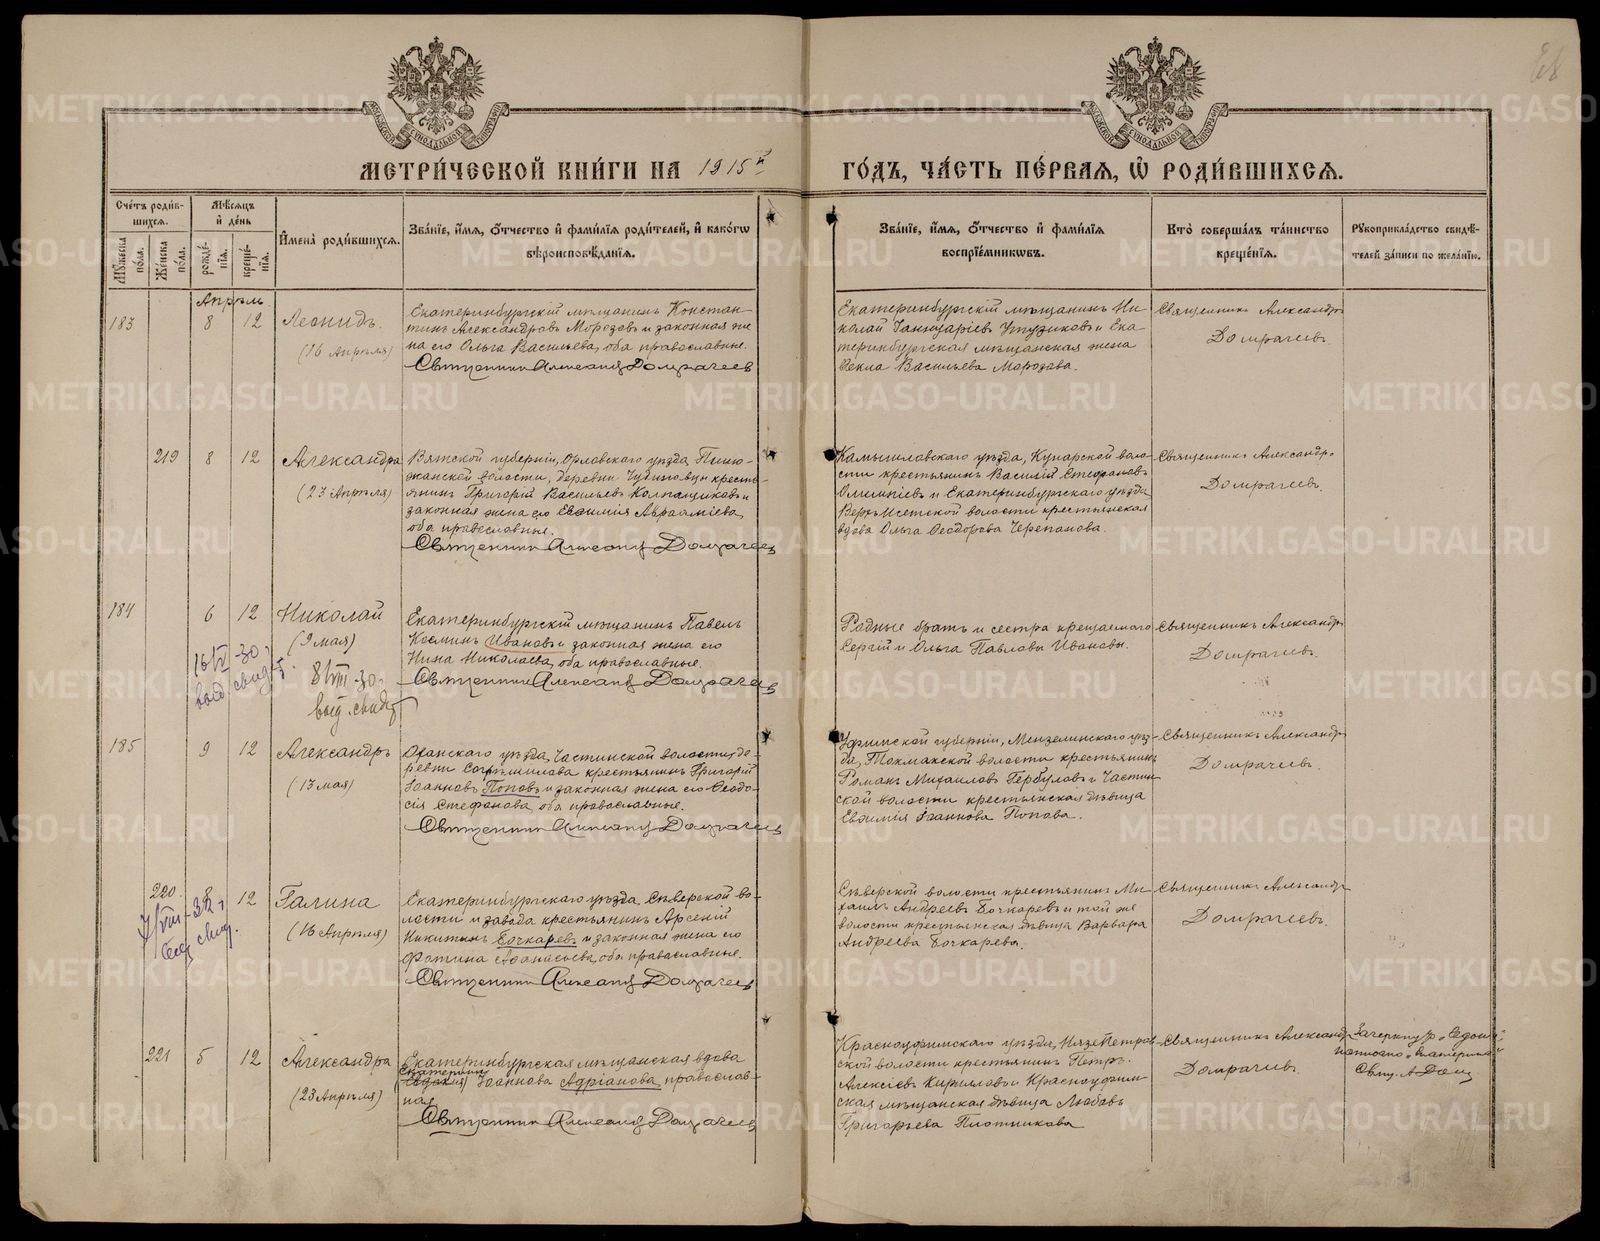 МЕТРИ́ЧЕСКОЙ КНИ́ГИ НА 1915й ГО́ДЪ, ЧА́СТЬ ПЕ́РВАЯ, Ѿ РОДИ́ВШИХСЯ.
Сче́тъ роди́в-
шихся.
Мꙋжеска по́ла.
Же́нска по́ла.
Мѣ́сяцъ
и҆ де́нь
рожде́-
нїя.
креще́-
нїя.
И҆мена̀ роди́вшихся.
Зва́нїе, и҆́мя, ѻ҆́тчество и҆ фами́лїѧ роди́телей, и҆ како́гѡ
вѣроисповѣ́данїя.
Зва́нїе, и҆́мя, ѻ҆́тчество и҆ фами́лїѧ
воспрїе́мникѡвъ.
Кто̀ соверша́лъ та́инство
креще́нїя.
Рꙋкоприкла́дство свидѣ́-
телей за́писи по жела́нїю.
Апрѣль
183
8
12
Леонидъ.
(16 Апрѣля)
Екатеринбургскій мѣщанинъ Констан-
тинъ Александровъ Морозовъ и законная же
на его Ольга Васильева, оба православные.
Священникъ Александръ Домрачеевъ
Екатеринбургскій мѣщанинъ Ни-
колай и Ека-
теринбургская мѣщанская жена
Ѳекла Васильева Морозова.
Священникъ Александръ
Домрачеевъ.
219
8
12
Александра
(23 Апрѣля)
Вятской губерніи, Орловскаго уѣзда,
волости, деревни кресть-
янинъ Григорій Васильевъ Колпащиковъ и
законная жена его Евѳимія Авраамиева,
оба православные.
Священникъ Александръ Домрачеевъ
Камышловскаго уѣзда, Кунарской воло-
сти крестьянинъ Василій Стефановъ
Олимпіевъ и Екатеринбургскаго уѣзда
Верхъ-Исетской волости крестьянская
вдова Ольга Ѳеодорова Черепанова.
Священникъ Александръ
Домрачеевъ.
184
6
12
Николай
(9 мая)
выд. свид.
8/VIII-30.
выд. свид.
Екатеринбургскій мѣщанинъ Павелъ
Косминъ Ивановъ и законная жена его
Нина Николаева, оба православные.
Священникъ Александръ Домрачеевъ
Родные братъ и сестра крещаемаго
Сергій и Ольга Павловы Ивановы.
Священникъ Александръ
Домрачеевъ.
185
9
12
Александръ
(13 мая)
Оханскаго уѣзда, Частинской волости, де-
ревни крестьянинъ Григорій
Іоанновъ Поповъ и законная жена его Ѳеодо-
сія Стефанова, оба православные.
Священникъ Александръ Домрачеевъ
Уфимской губерніи, Мензелинскаго уѣз-
да, Токмакской волости крестьянинъ
Романъ Михаиловъ Гербуловъ и Частин-
ской волости крестьянская дѣвица
Евѳимія Іоаннова Попова.
Священникъ Александръ
Домрачеевъ.
220
8
12
Галина
(16 Апрѣля)
свид.
Екатеринбургскаго уѣзда, Сѣверской во-
лости и завода крестьянинъ Арсеній
Никитинъ Бочкаревъ и законная жена его
Фотина Аѳанасьева, оба православные.
Священникъ Александръ Домрачеевъ
Сѣверской волости крестьянинъ Ми-
хаилъ Андреевъ Бочкаревъ и той же
волости крестьянская дѣвица Варвара
Андреева Бочкарева.
Священникъ Александръ
Домрачеевъ.
221
5
12
Александра
(23 Апрѣля)
Екатеринбургская мѣщанская вдова
Екатерина
Іоаннова Адріанова, православ-
ная
Священникъ Александръ Домрачеевъ
Красноуфимскаго уѣзда, Нязепетров-
ской волости крестьянинъ Петръ
Алексіевъ Кириловъ и Красноуфим-
ская мѣщанская дѣвица Любовь
Григорьева Плотникова
Священникъ Александръ
Домрачеевъ.
написано „Екатерина“
Свящ. А. Дом
METRIKI.GASO-URAL.RU